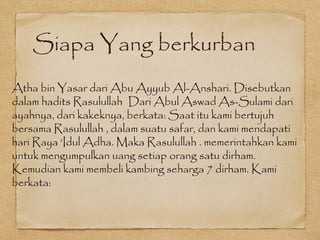 Siapa Yang berkurban
Atha bin Yasar dari Abu Ayyub Al-Anshari. Disebutkan
dalam hadits Rasulullah Dari Abul Aswad As-Sulami dari
ayahnya, dari kakeknya, berkata: Saat itu kami bertujuh
bersama Rasulullah , dalam suatu safar, dan kami mendapati
hari Raya 'Idul Adha. Maka Rasulullah . memerintahkan kami
untuk mengumpulkan uang setiap orang satu dirham.
Kemudian kami membeli kambing seharga 7 dirham. Kami
berkata: